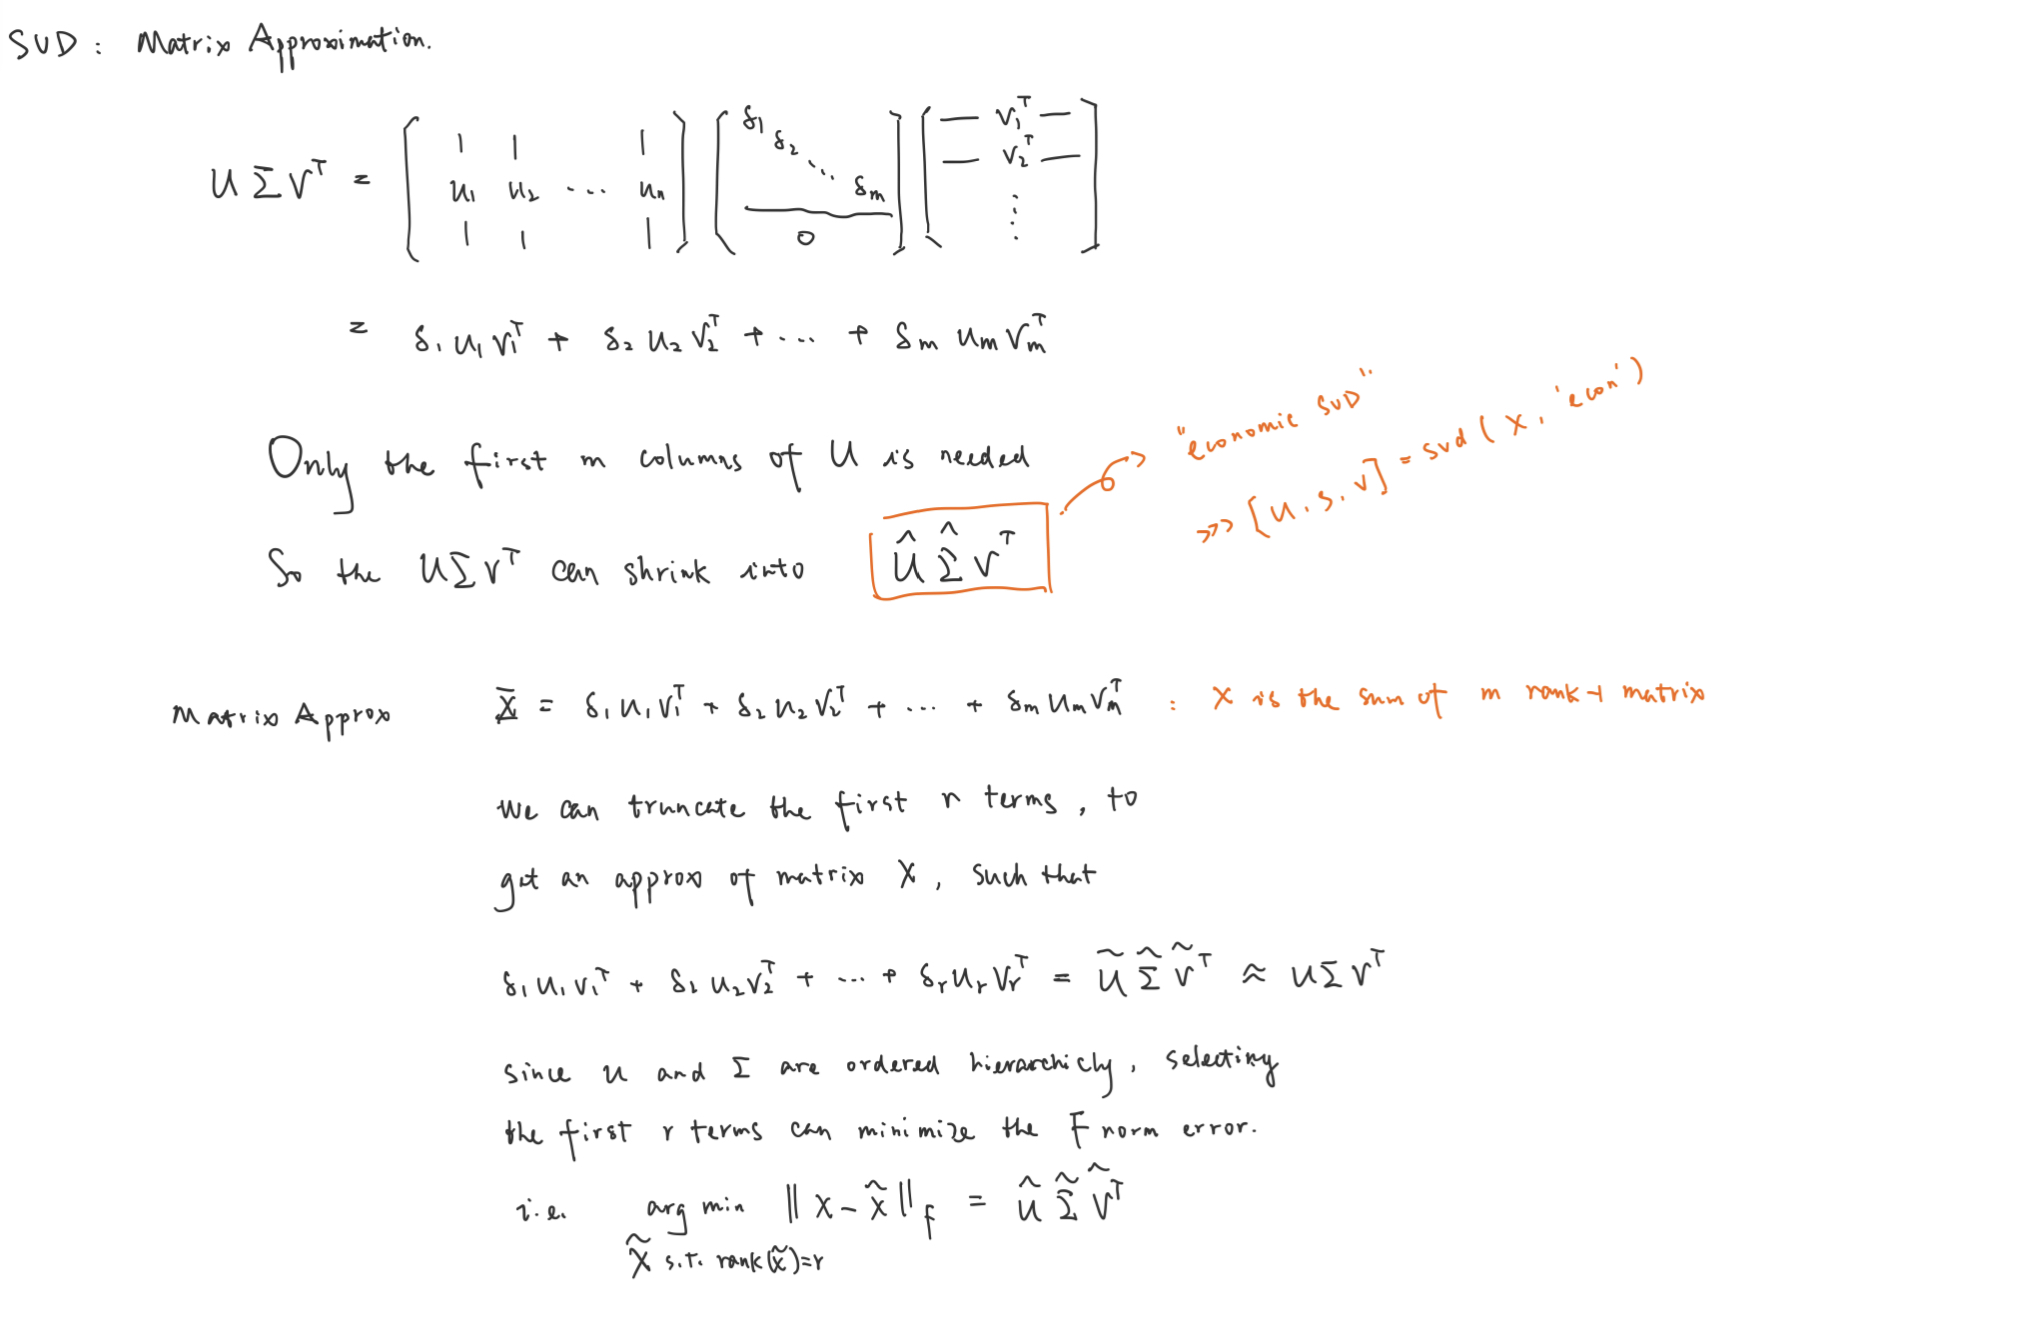 SVD : Matrix Approximation.
U Σ Vᵀ = [ | | | u₁ u₂ ... uₙ | | | ] [ δ₁ δ₂ ⋱ δₘ 0 ] [ — v₁ᵀ — — v₂ᵀ — ⋮ ]
= δ₁ u₁ v₁ᵀ + δ₂ u₂ v₂ᵀ + ... + δₘ uₘ vₘᵀ
Only the first m columns of U is needed
"economic SVD"
>>> [U, S, V] = svd ( X, 'econ')
So the UΣVᵀ can shrink into Û Σ̂ Vᵀ
Matrix Approx X = δ₁ u₁ v₁ᵀ + δ₂ u₂ v₂ᵀ + ... + δₘ uₘ vₘᵀ : X is the sum of m rank-1 matrix
we can truncate the first r terms, to
get an approx of matrix X, such that
δ₁ u₁ v₁ᵀ + δ₂ u₂ v₂ᵀ + ... + δᵣ uᵣ vᵣᵀ = Ũ Σ̃ Ṽᵀ ≈ UΣVᵀ
since U and Σ are ordered hierarchicly, selecting
the first r terms can minimize the F norm error.
i.e. arg min ‖ X - X̃ ‖ F = Ũ Σ̃ Ṽᵀ
X̃ s.t. rank(X̃)=r